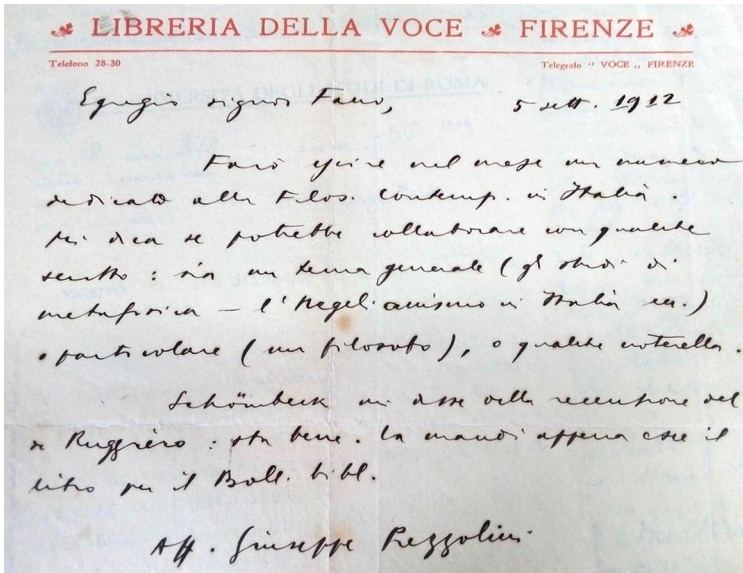 LIBRERIA DELLA VOCE FIRENZE
Telefono 28-30 Telegrafo " VOCE „ FIRENZE
Egregio signor Fano, 5 sett. 1912
Farò uscire nel mese un numero
dedicato alla Filos. contemp. in Italia.
Mi dica se potrebbe collaborare con qualche
scritto: sia un tema generale (gli studi di
metafisica — l'Hegelianismo in Italia ecc.)
o particolare (un filosofo), o qualche noterella.
Schömbeck mi disse della recensione del
de Ruggiero: sta bene. La mandi appena esce il
libro per il Boll. bibl.
Aff. Giuseppe Prezzolini